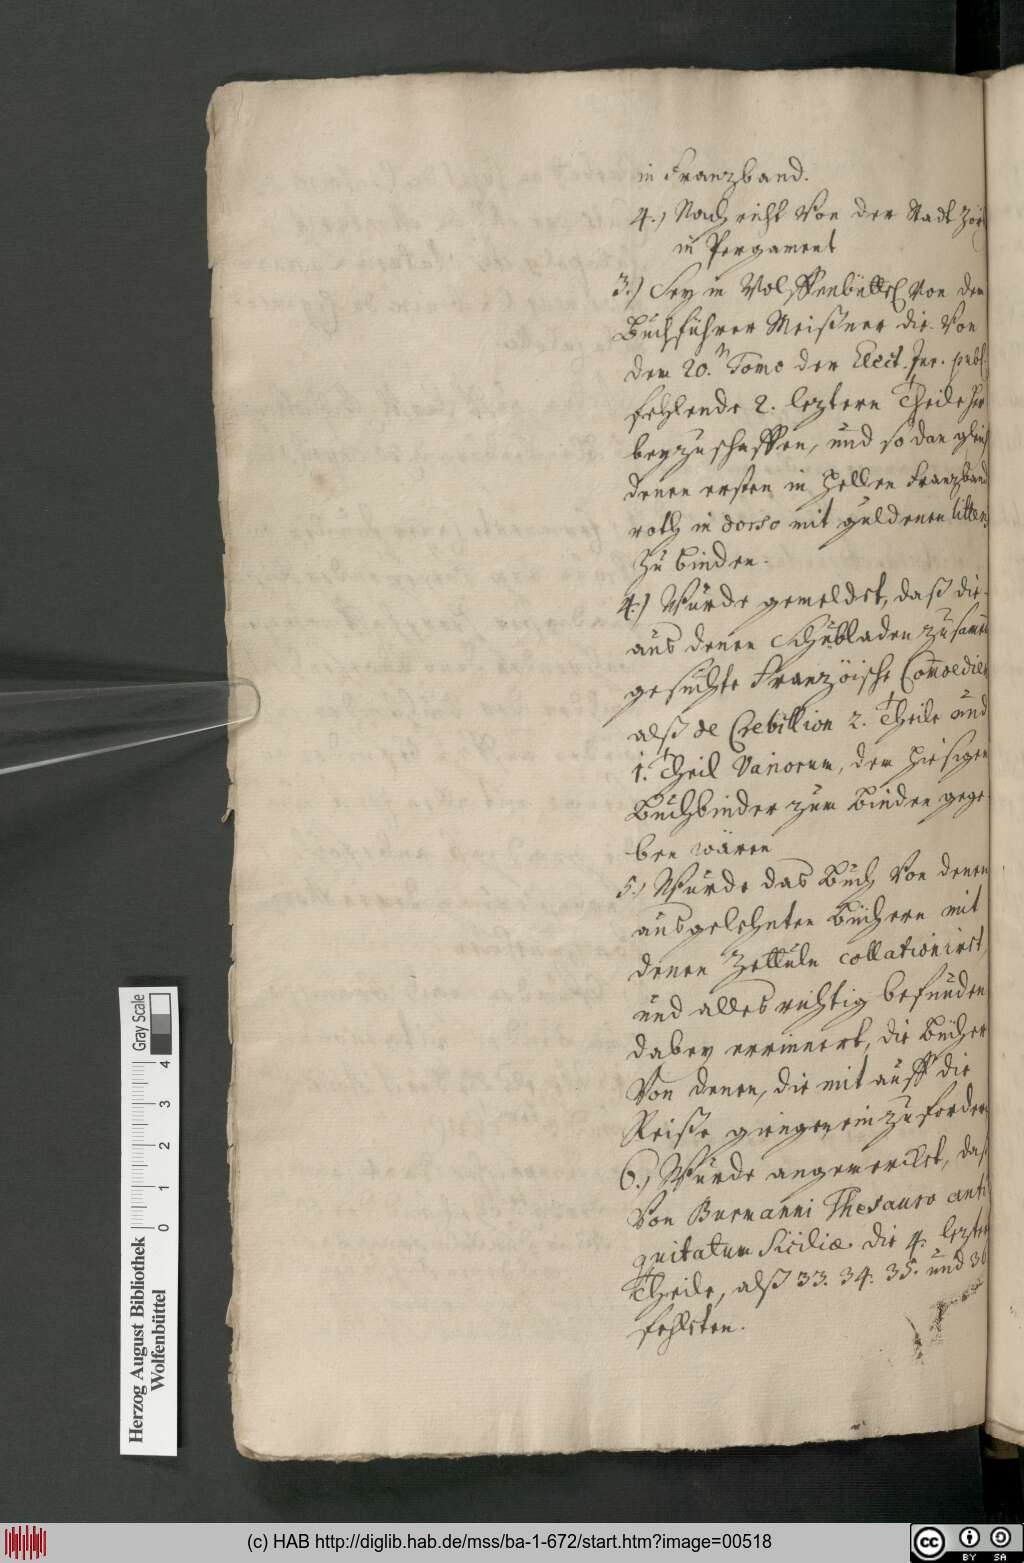 in Franzband.
4.) Nachricht von der Stadt Zör
in Pergament
3.) Sey in Wolffenbüttel von dem
Buchführer Meißner die von
dem 20.n Tomo der Elect. Jur. publ.
fehlende 2. leztern Theile her
beyzuschaffen, und so dan gleich
denen ersten in hellen Franzband
roth in dorso mit guldenen litter
zu binden.
4.) Wurde gemeldet, daß die
aus denen Schubladen zusamen
gesuchte Franzöische Comoedien
alß de Crebillion 2. Theile und
1. Theil Variorum, dem hiesigen
Buchbinder zum Binden gege-
ben wären
5.) Wurde das Buch von denen
ausgelehnten Büchern mit
denen Zettuln collationiret,
und alles richtig befunden
dabey errinnert, die Bücher
von denen, die mit auff die
Reise giengen einzufordern
6.) Wurde angemercket, daß
von Burmanni Thesauro anti
quitatum Siciliæ die 4. lezter
Theile, alß 33. 34. 35. und 36
fehlten.
Gray Scale
0 1 2 3 4
Herzog August Bibliothek
Wolfenbüttel
(c) HAB http://diglib.hab.de/mss/ba-1-672/start.htm?image=00518
cc BY SA